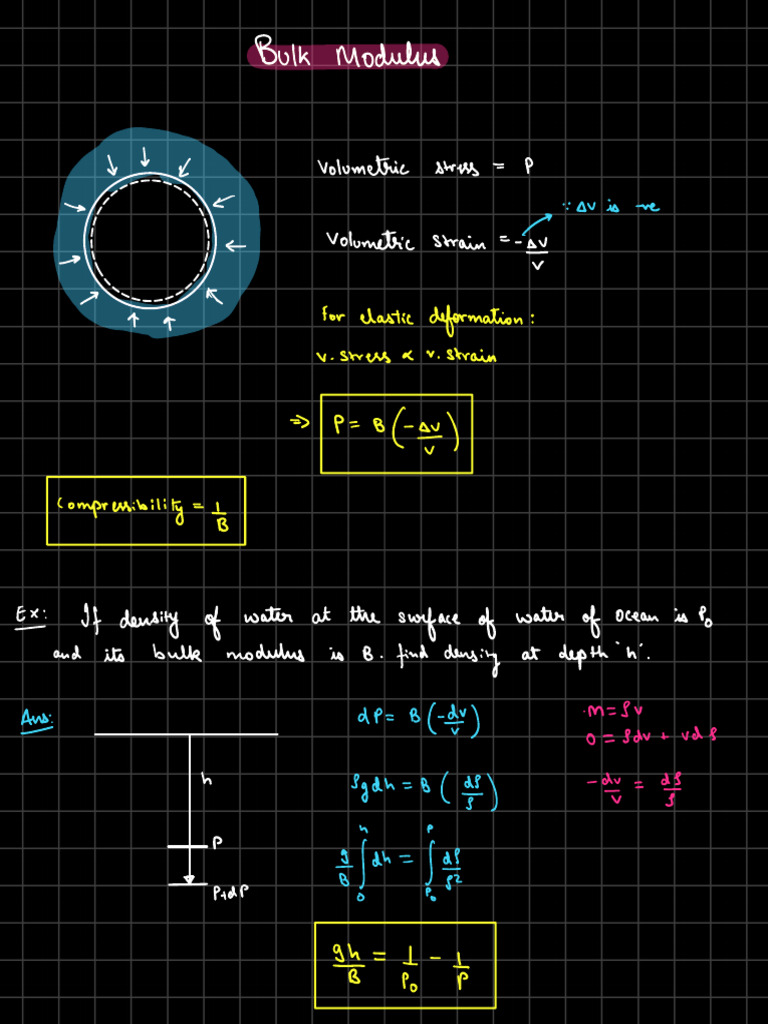 Bulk Modulus
Volumetric stress = P
∵ ΔV is -ve
Volumetric strain = -ΔV/V
For elastic deformation:
V. stress ∝ V. strain
⇒ P = B(-ΔV/V)
Compressibility = 1/B
Ex: If density of water at the surface of water of ocean is ρ₀
and its bulk modulus is B. find density at depth 'h'.
Ans:
h
P
P+dP
dP = B(-dV/V)
ρgdh = B(dρ/ρ)
g/B ∫₀ʰ dh = ∫_ρ₀^ρ dρ/ρ²
gh/B = 1/ρ₀ - 1/ρ
m = ρV
0 = ρdV + Vdρ
-dV/V = dρ/ρ